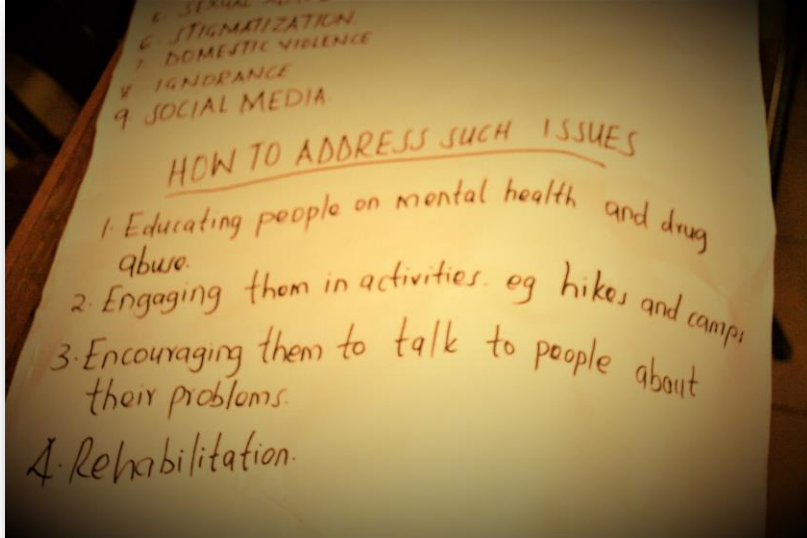 5. SEXUAL
6. STIGMATIZATION
7. DOMESTIC VIOLENCE
8. IGNORANCE
9. SOCIAL MEDIA.
HOW TO ADDRESS SUCH ISSUES
1. Educating people on mental health and drug
abuse.
2. Engaging them in activities. eg hikes and camps
3. Encouraging them to talk to people about
their problems.
4. Rehabilitation.